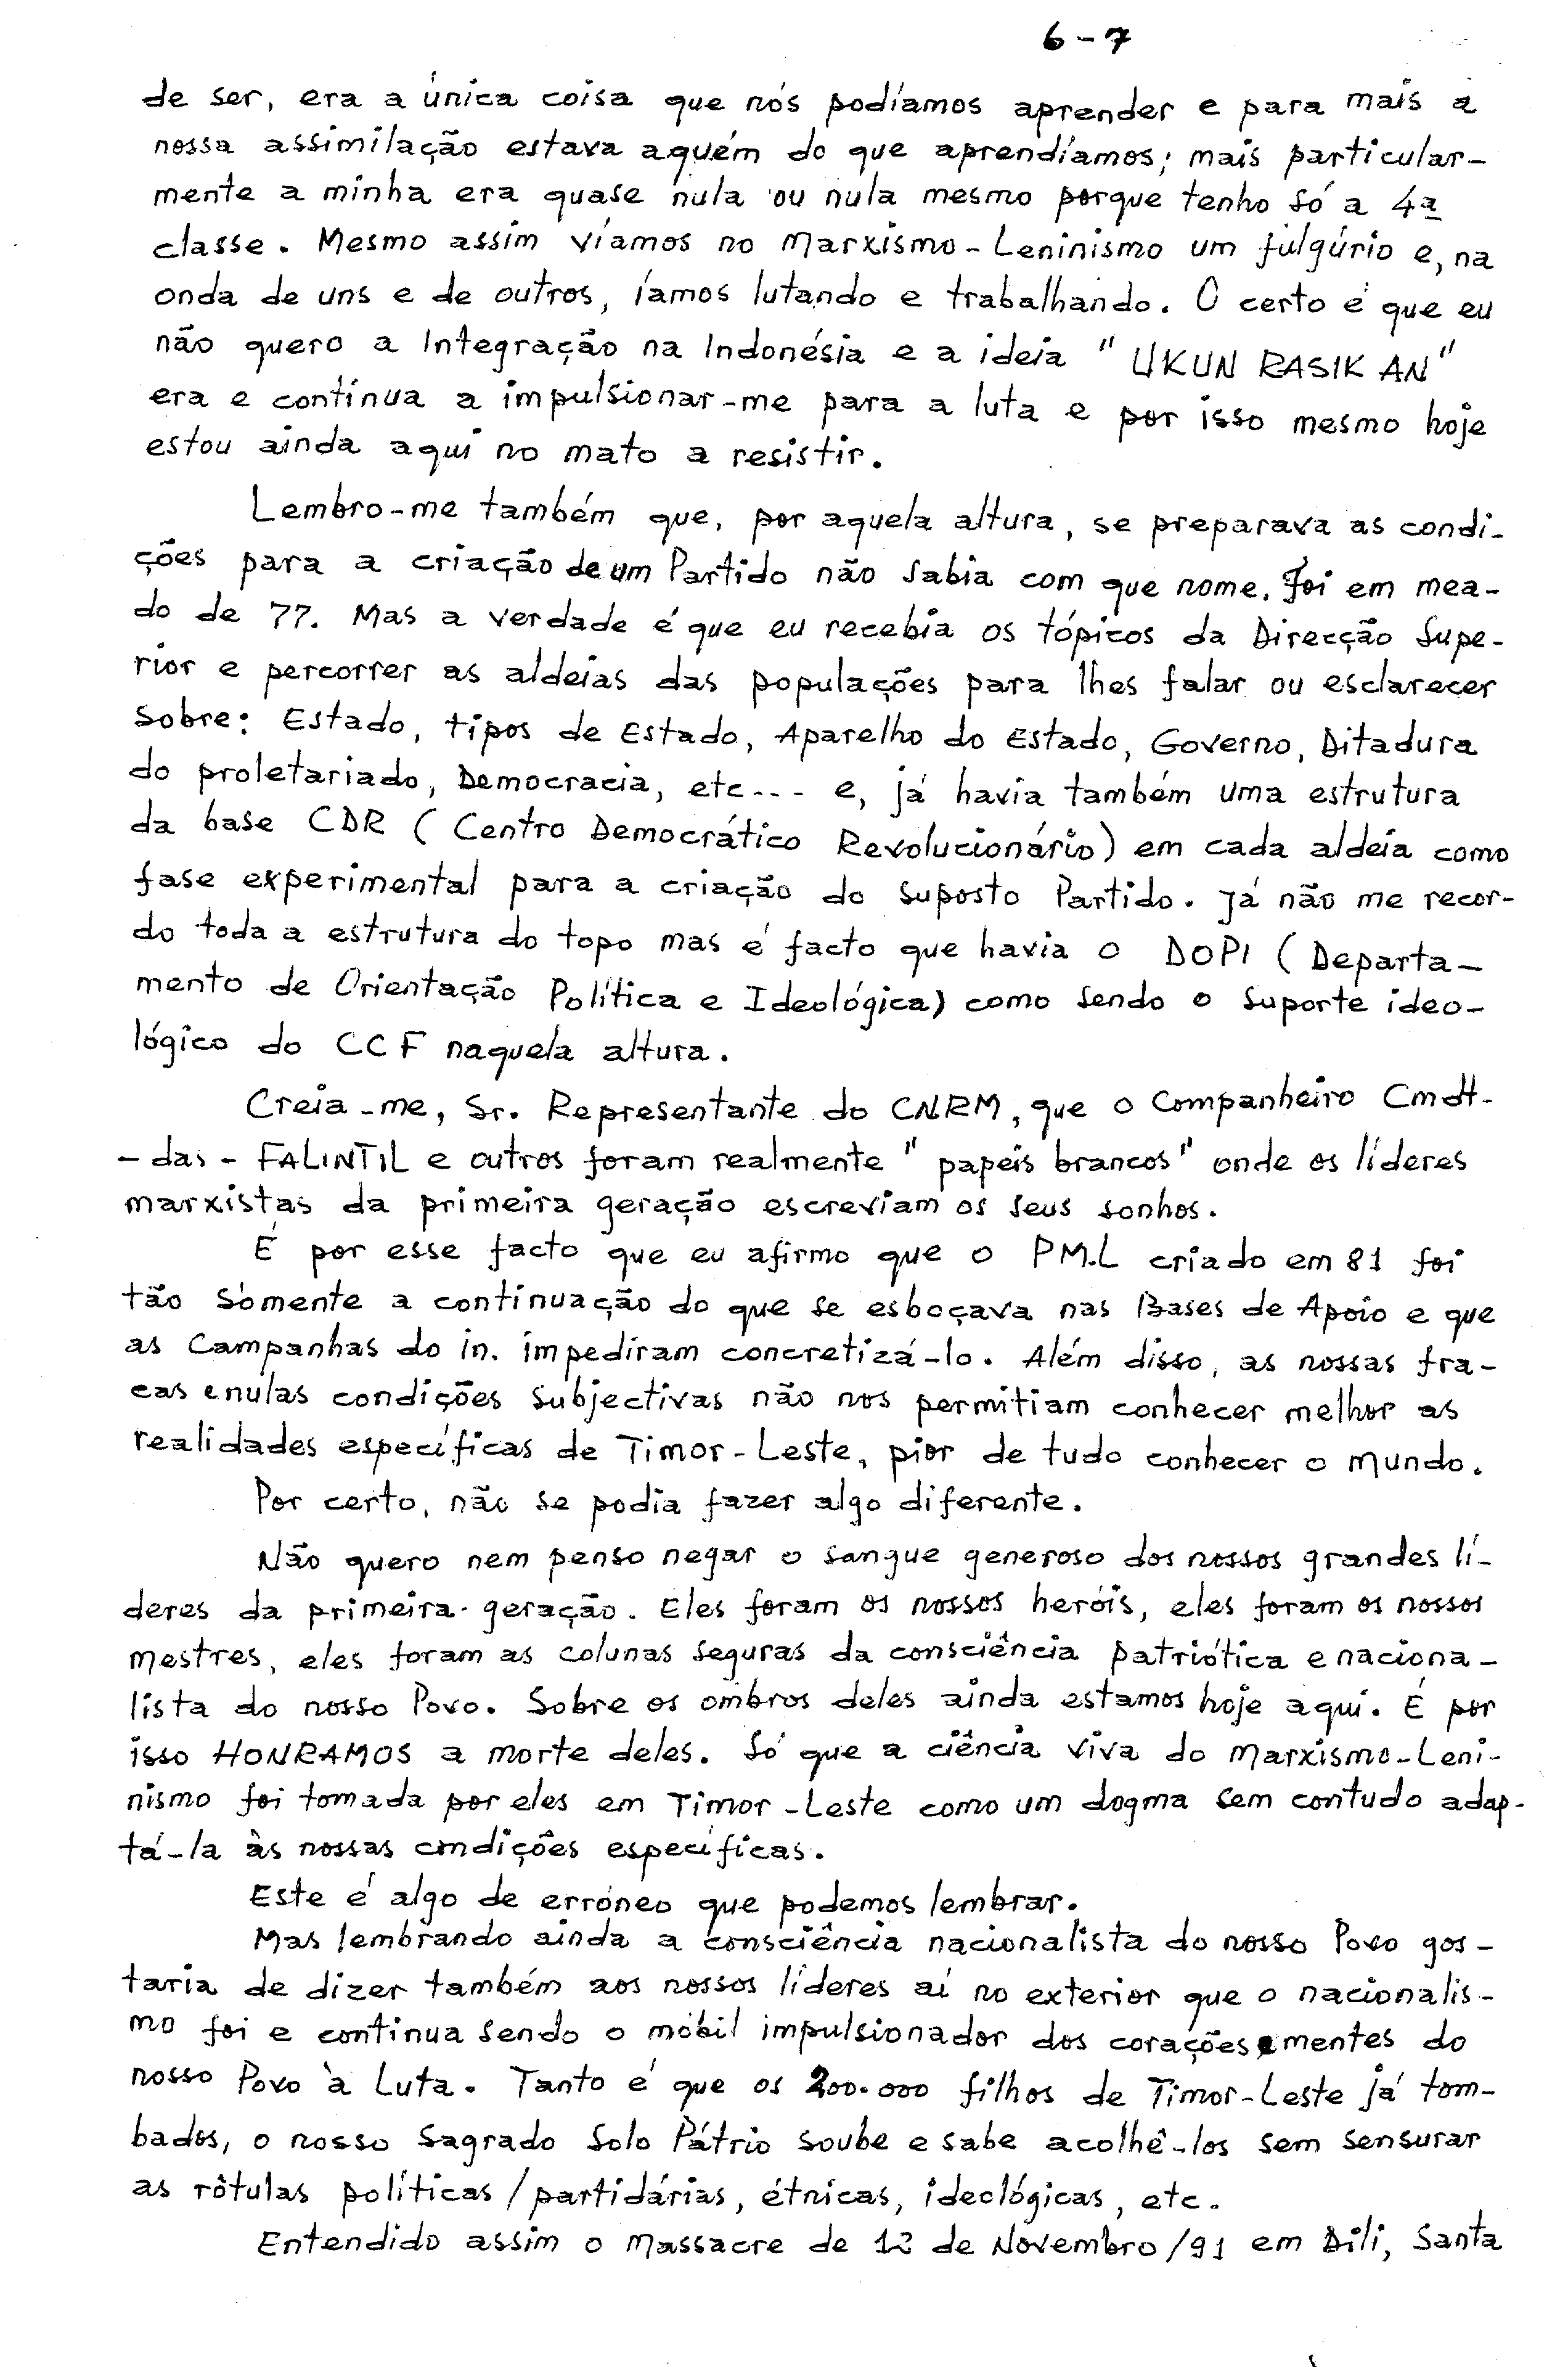 6-7
de ser, era a única coisa que nós podíamos aprender e para mais a
nossa assimilação estava aquém do que aprendíamos; mais particular-
mente a minha era quase nula ou nula mesmo porque tenho só a 4ª
classe. Mesmo assim víamos no Marxismo-Leninismo um fulgúrio e, na
onda de uns e de outros, íamos lutando e trabalhando. O certo é que eu
não quero a Integração na Indonésia e a ideia "UKUN RASIK AN"
era e continua a impulsionar-me para a luta e por isso mesmo hoje
estou ainda aqui no mato a resistir.
Lembro-me também que, por aquela altura, se preparava as condi-
ções para a criação de um Partido não sabia com que nome. Foi em mea-
do de 77. Mas a verdade é que eu recebia os tópicos da Direcção Supe-
rior e percorrer as aldeias das populações para lhes falar ou esclarecer
sobre: Estado, tipos de Estado, Aparelho do Estado, Governo, Ditadura
do proletariado, Democracia, etc--- e, já havia também uma estrutura
da base CDR (Centro Democrático Revolucionário) em cada aldeia como
fase experimental para a criação do suposto Partido. Já não me recor-
do toda a estrutura do topo mas é facto que havia o DOPI (Departa-
mento de Orientação Política e Ideológica) como sendo o suporte ideo-
lógico do CCF naquela altura.
Creia-me, Sr. Representante do CNRM, que o Companheiro Cmdt-
-das-FALINTIL e outros foram realmente "papeis brancos" onde os líderes
marxistas da primeira geração escreviam os seus sonhos.
É por esse facto que eu afirmo que o PM.L criado em 81 foi
tão sómente a continuação do que se esboçava nas Bases de Apoio e que
as Campanhas do in. impediram concretizá-lo. Além disso, as nossas fra-
cas e nulas condições subjectivas não nos permitiam conhecer melhor as
realidades específicas de Timor-Leste, pior de tudo conhecer o mundo.
Por certo, não se podia fazer algo diferente.
Não quero nem penso negar o sangue generoso dos nossos grandes lí-
deres da primeira geração. Eles foram os nossos heróis, eles foram os nossos
mestres, eles foram as colunas seguras da consciência patriótica e naciona-
lista do nosso Povo. Sobre os ombros deles ainda estamos hoje aqui. É por
isso HONRAMOS a morte deles. Só que a ciência viva do Marxismo-Leni-
nismo foi tomada por eles em Timor-Leste como um dogma sem contudo adap-
tá-la às nossas condições específicas.
Este é algo de erróneo que podemos lembrar.
Mas lembrando ainda a consciência nacionalista do nosso Povo gos-
taria de dizer também aos nossos líderes aí no exterior que o nacionalis-
mo foi e continua sendo o móbil impulsionador dos corações e mentes do
nosso Povo à Luta. Tanto é que os 200.000 filhos de Timor-Leste já tom-
bados, o nosso Sagrado Solo Pátrio soube e sabe acolhê-los sem sensurar
as rótulas políticas/partidárias, étnicas, ideológicas, etc.
Entendido assim o Massacre de 12 de Novembro/91 em Dili, Santa